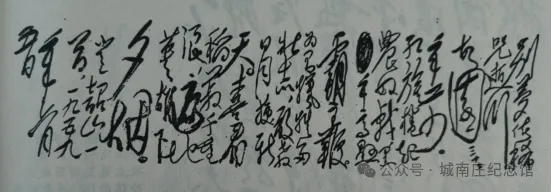 别梦依稀
咒逝川
故园三
红旗卷起
農奴戟黑
手高悬
霸主鞭
为有牺牲多
壮志，敢教
日月换新
天 喜看
稻菽千重
浪
英雄下
夕烟
登韶山一
首 一九五九
年
公众号·城南庄纪念馆